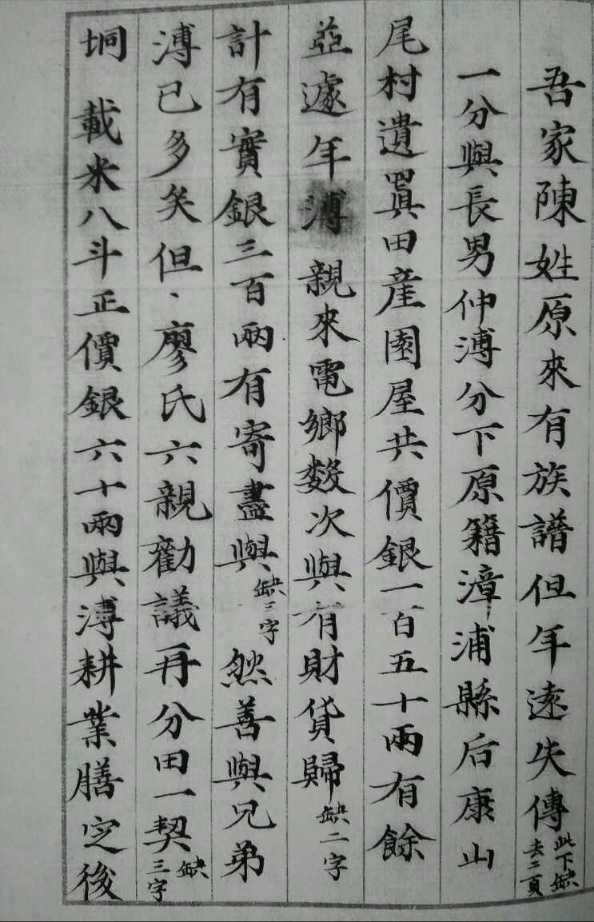 吾家陳姓原來有族譜但年遠失傳此下缺去二頁
一分與長男仲溥分下原籍漳浦縣后康山
尾村遺置田産園屋共價銀一百五十兩有餘
亞遽年溥親來電鄉数次與有財貨歸缺二字
計有實銀三百兩有寄盡與缺三字然善與兄弟
溥已多矣但、廖氏六親勸議再分田一契缺三字
垌載米八斗正價銀六十兩與溥耕業膳定後